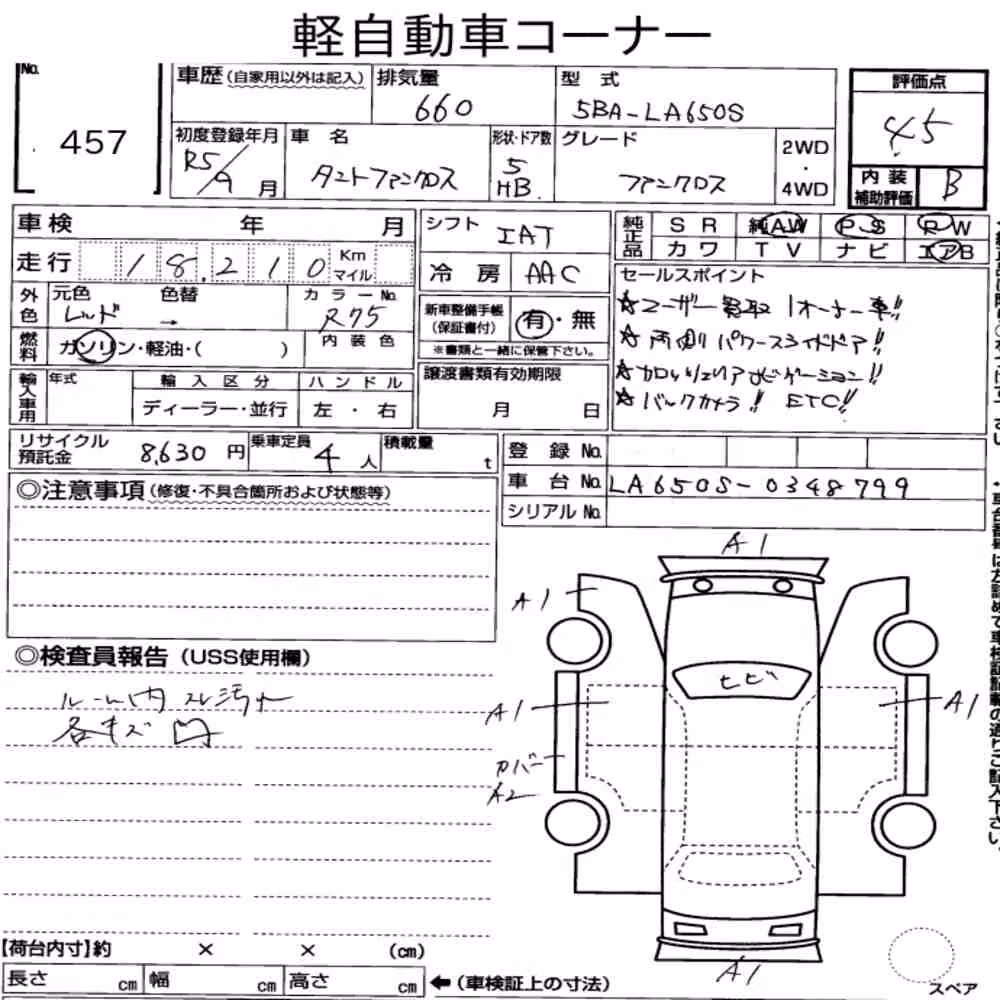 軽自動車コーナー
No. 457
車歴 (自家用以外は記入)
排気量 660
型式 5BA-LA650S
評価点 4.5
初度登録年月 R5/9月
車名 タントファンクロス
形状・ドア数 5 HB.
グレード ファンクロス
2WD・4WD
内装補助評価 B
車検 年 月
シフト IAT
純正品 SR 純AW PS RW
カワ TV ナビ エアB
走行 18,210 Km マイル
冷房 AAC
セールスポイント
☆ユーザー買取 1オーナー車!!
☆両側パワースライドドア!!
☆カロッツェリアナビゲーション!!
☆バックカメラ!! ETC!!
外色 元色 レッド 色替 → カラーNo. R75
新車整備手帳(保証書付) 有・無
※書類と一緒に保管下さい。
燃料 ガソリン・軽油・( ) 内装色
輸入車用 年式 輸入区分 ハンドル
ディーラー・並行 左・右
譲渡書類有効期限
月 日
リサイクル預託金 8,630円
乗車定員 4人
積載量 t
登録No.
車台No. LA650S-0348799
シリアルNo.
◎注意事項 (修復・不具合箇所および状態等)
◎検査員報告 (USS使用欄)
ルーム内 スレ汚れ
各キズ 凹
A1
A1
ヒビ
A1
A1
カバー
A2
A1
スペア
【荷台内寸】約 × × (cm)
長さ cm 幅 cm 高さ cm ←(車検証上の寸法)
・車台番号は左詰めで車検証記載の通りご記入下さい。